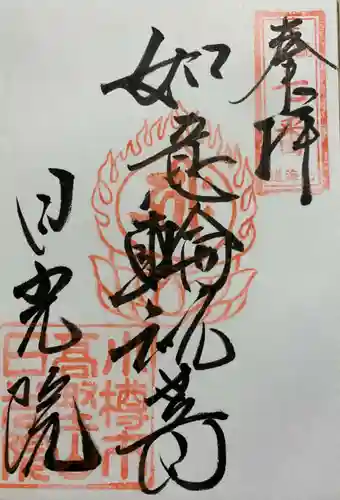 奉拝
如意輪観音
日光院
小樽市
高野山
日光院